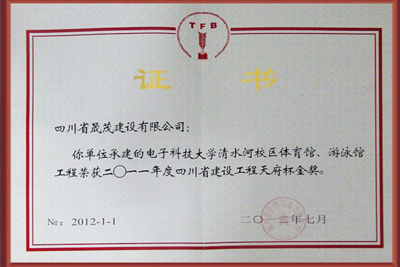 TFB
证 书
四川省晟茂建设有限公司:
你单位承建的电子科技大学清水河校区体育馆、游泳馆
工程荣获二〇一一年度四川省建设工程天府杯金奖。
№: 2012-1-1
二〇一二年七月